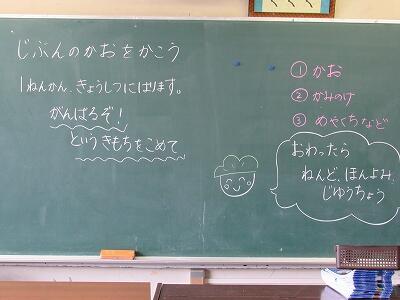 じぶんのかおをかこう
1ねんかん、きょうしつにはります。
がんばるぞ!
というきもちをこめて
①かお
②かみのけ
③めやくちなど
おわったら
ねんど、ほんよみ、
じゆうちょう